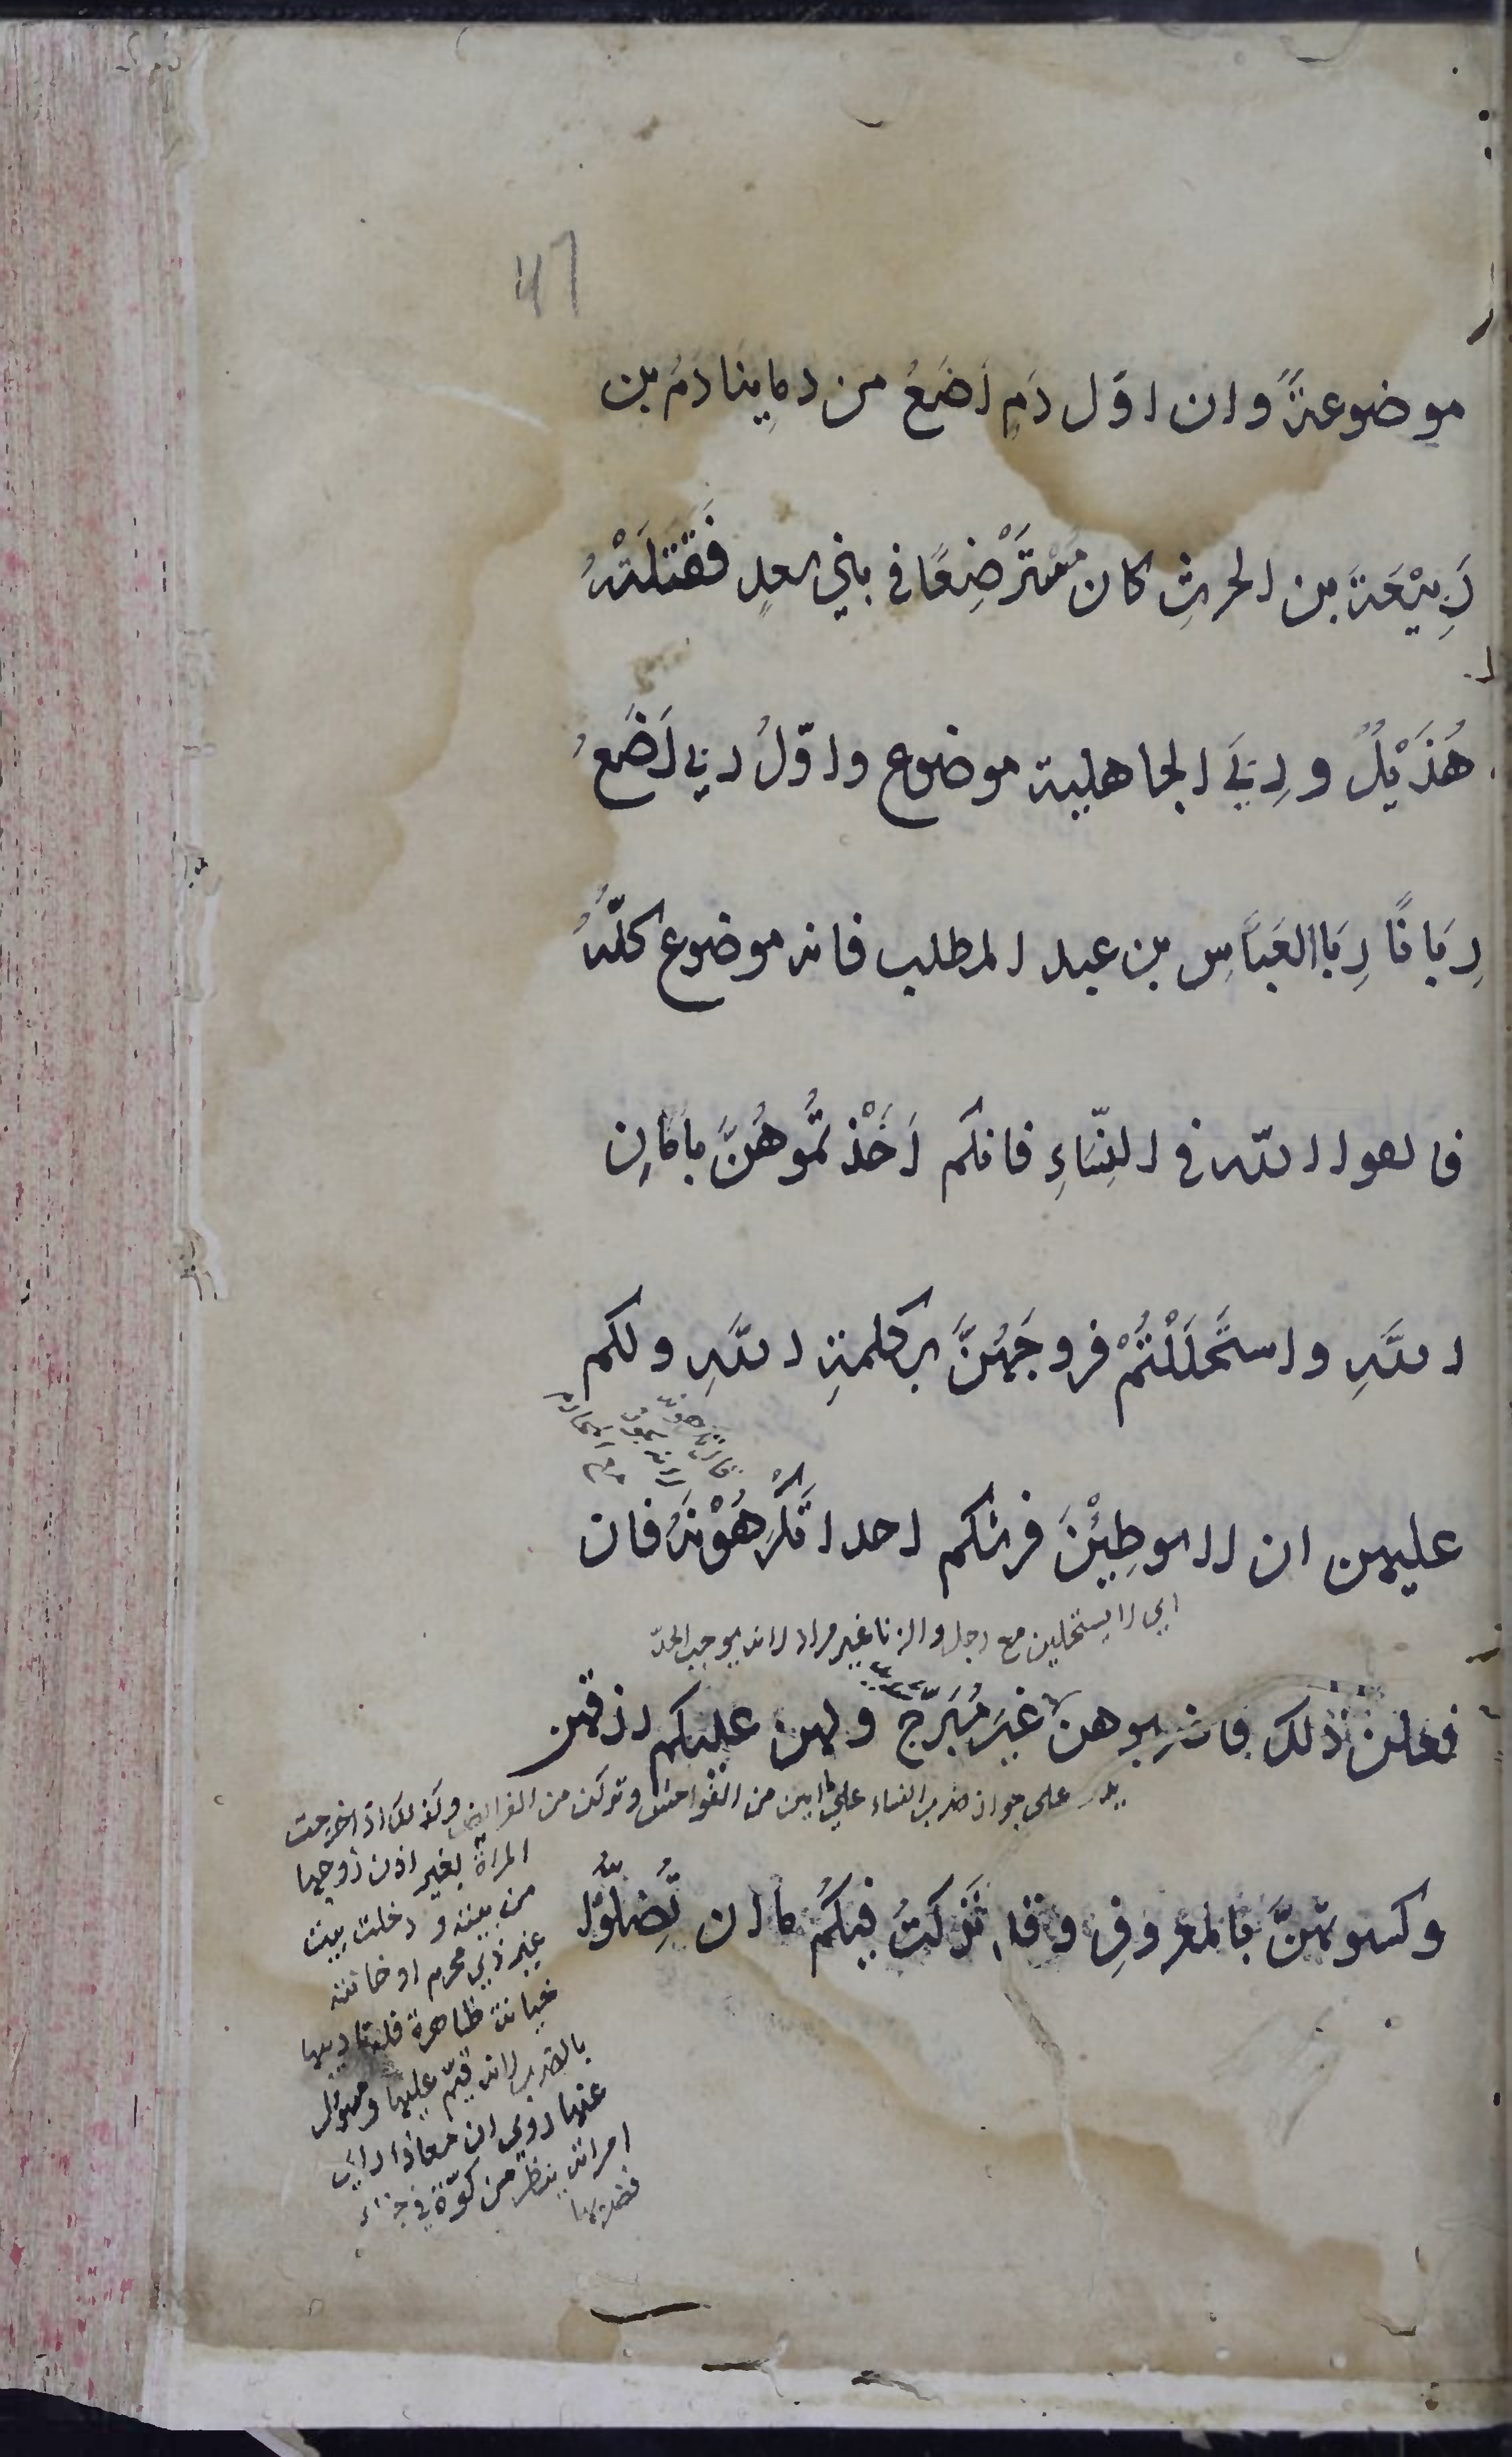 47
موضوعةً وان اوّل دَمٍ اَضَعُ من دماينا دَمُ بن
رَبِيْعَةَ بن الحرثِ كان مُسْتَرْضِعًا في بني سعدٍ فَقَتَلَتْهُ
هُذَيْلٌ ورِبَي الجاهلية موضوع واوّلُ ربي اَضَعُ
رِبَانَا رِبَا العَبَّاسِ بن عبد المطلب فانه موضوع كلّهُ
فاتقوا الله في النِّسَاءِ فانكم اَخَذْتُمُوهُنَّ بامانِ
اللَّهِ واستَحْلَلْتُمْ فروجَهُنَّ بكلمةِ اللَّهِ ولكم
عليهن ان لا يوطِيْنَ فرشكم احدا تَكْرَهُوْنَهُ فان
اي لا يستخلين مع رجل والزنا غير مراد لانه يوجب الحدّ
فعلن ذلك فاضربوهن غيرَ مُبَرِّحٍ ولهن عليكم رزقهن
يدل على جواز ضرب النساء على ما ابين من الفواحش وتركن من الفرايض وكذلك اذا خرجت
المراة بغير اذن زوجها
من بيته و دخلت بيت
غير ذي محرم او خانته
خيانة ظاهرة فله تاديبها
بالضرب لانه قيّم عليها ومسؤل
عنها روي ان معاذا راي
امراته ينظر من كوّة في خباء
فضربها
وكسوتهنَّ بالمعروفِ وقد تَرَكتُ فيكُم ما لن تَضِلّوا